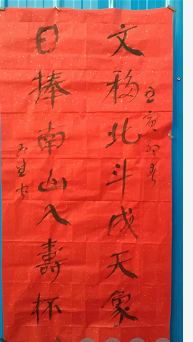 文移北斗成天象
日捧南山入壽杯